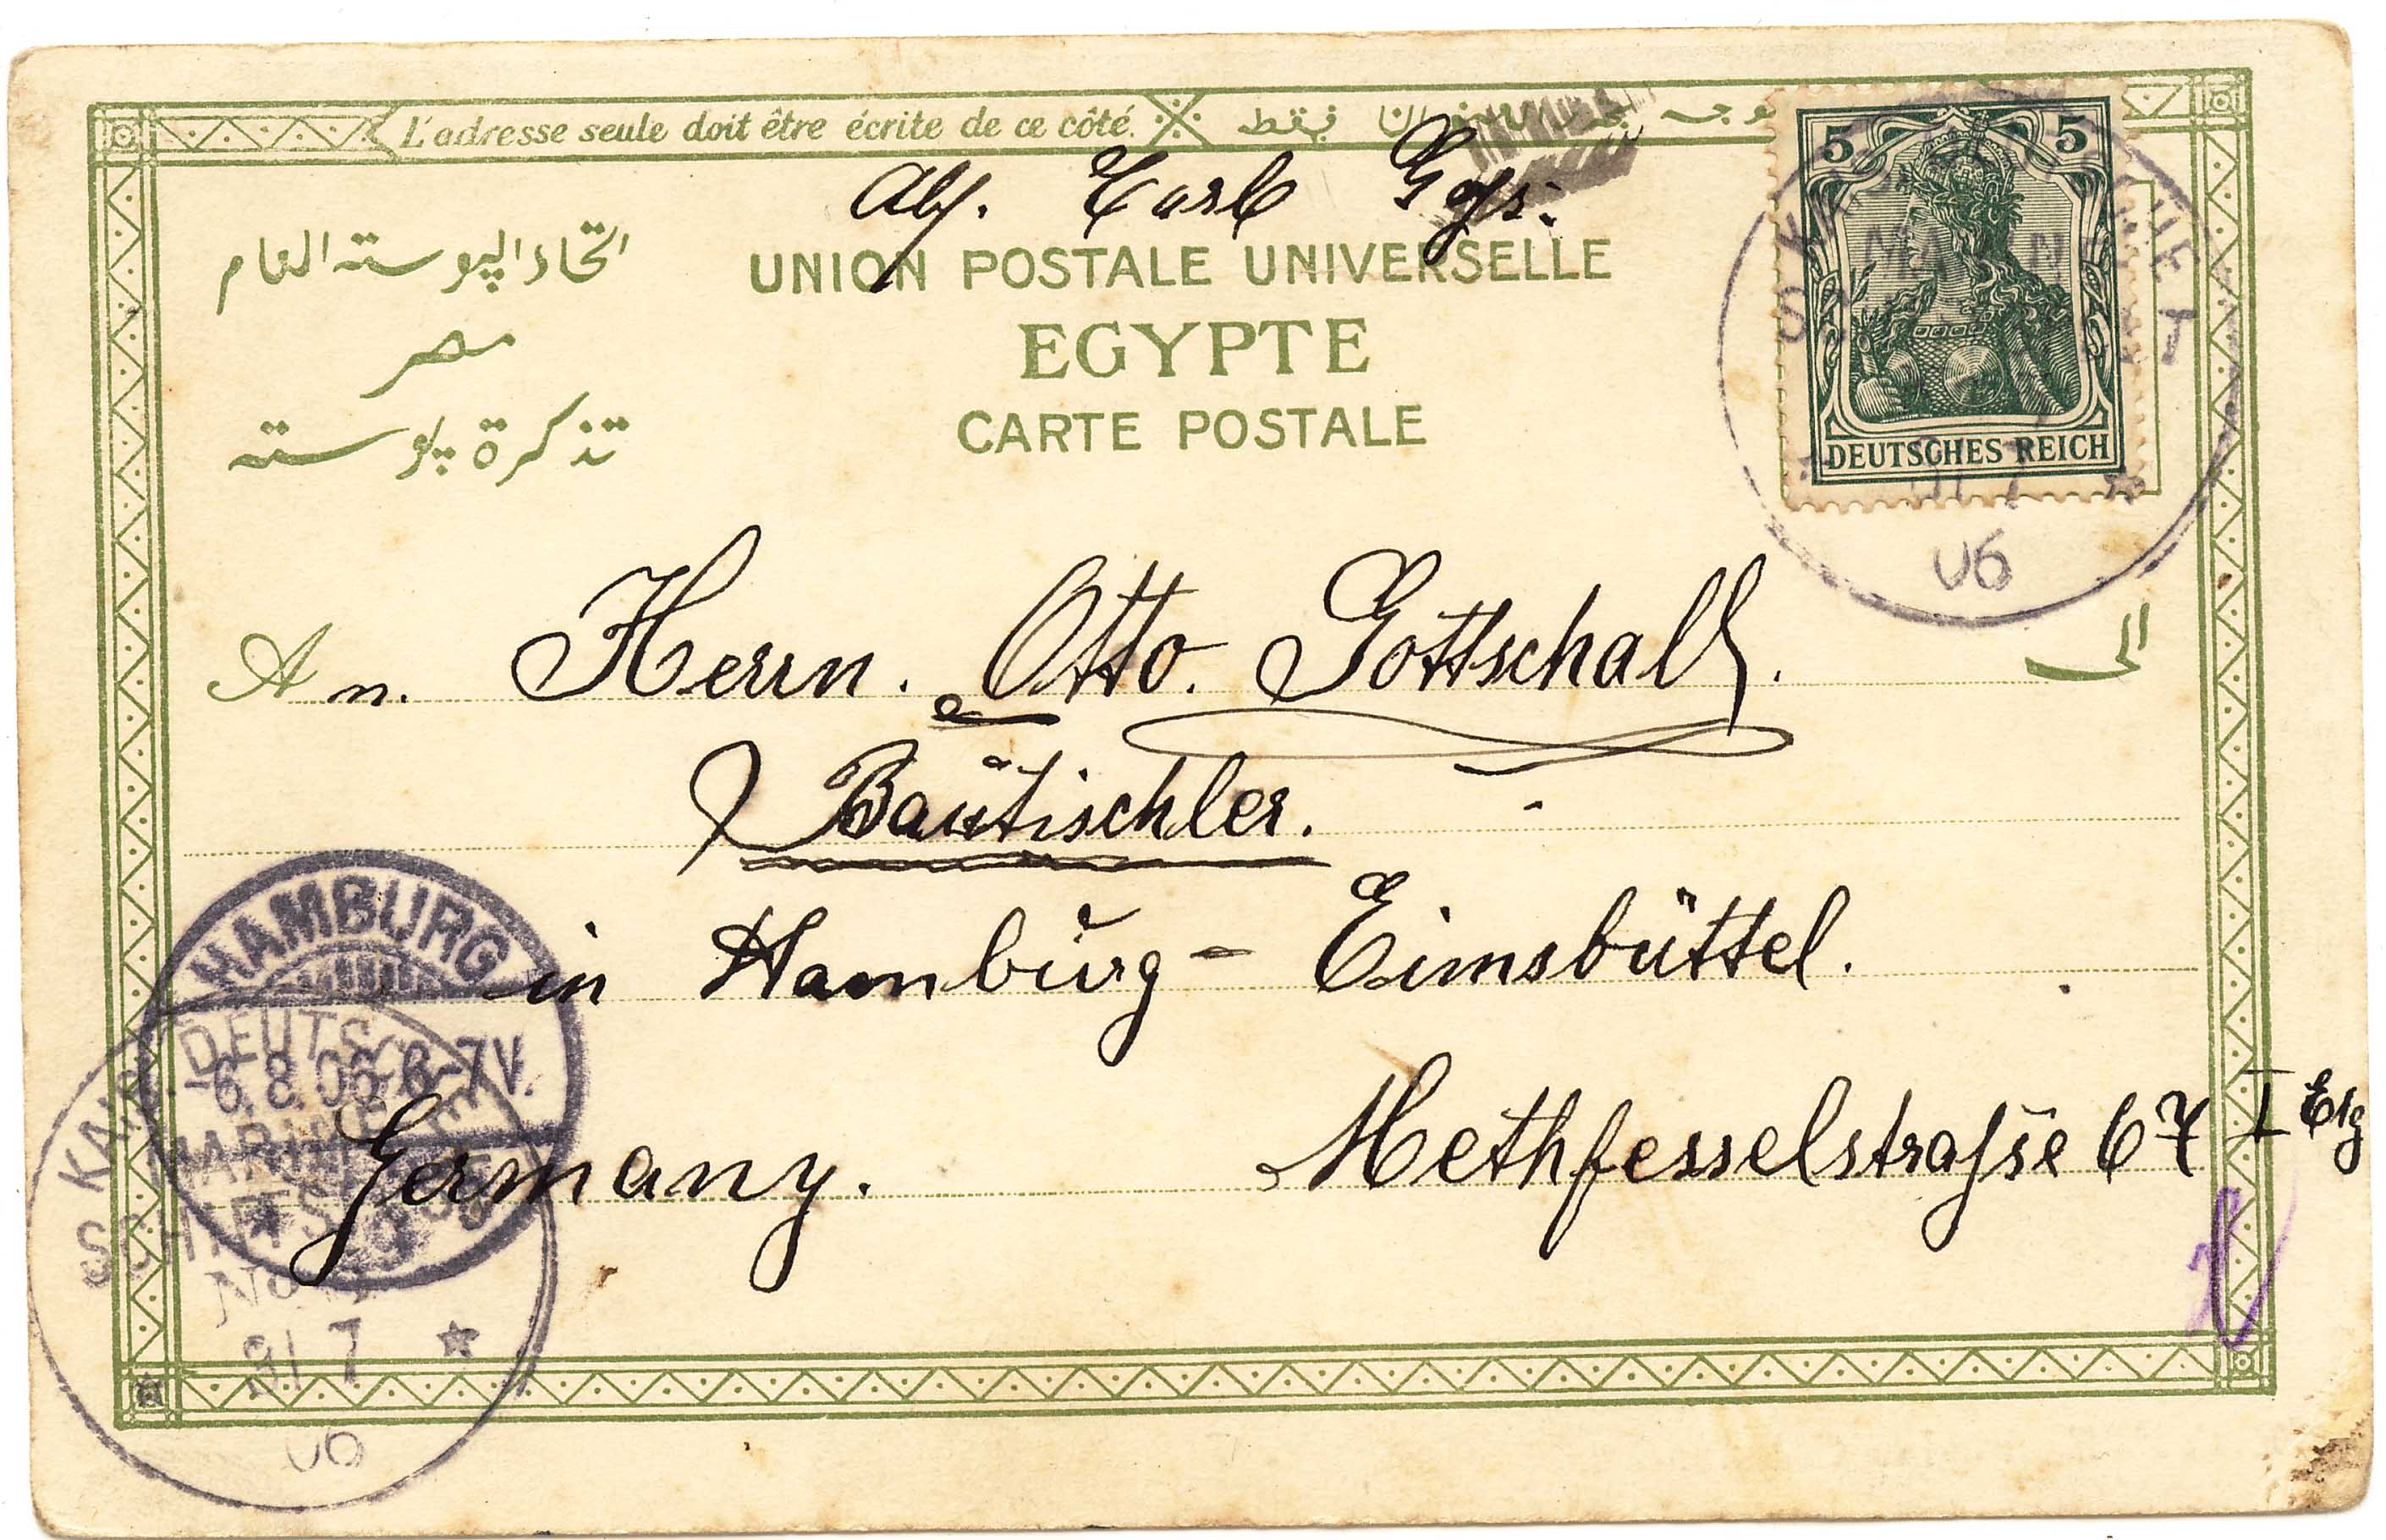 L'adresse seule doit être écrite de ce côté.
فقط
Abs. Carl
اتحاد البوسته العام
مصر
تذكرة بوسته
UNION POSTALE UNIVERSELLE
EGYPTE
CARTE POSTALE
5 5
DEUTSCHES REICH
06
An. Herrn. Otto. Gottschalk.
الى
Bautischler.
in Hamburg - Eimsbüttel.
Germany. Methfesselstrasse 67 I Etg
HAMBURG
6.8.06.6-7V.
KAIS. DEUTSCHE
MARINE
SCHIFFSPOST
No
31 7
06